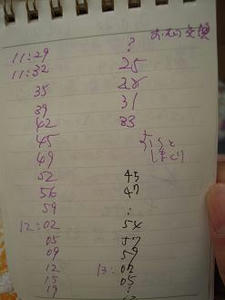 おむつ交換
11:29 ?
11:32 25
35 28
39 31
42 33
45
49
52 45
56 47
59 :
12:02 54
05 57
09 59
12 13:02
15 05
19